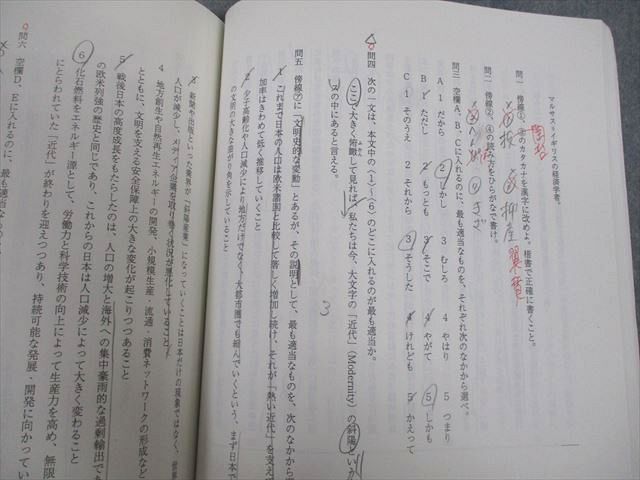 マルサス=イギリスの経済学者。
問一 傍線②、③のカタカナを漢字に改めよ。楷書で正確に書くこと。
問二 傍線①、④の読み方をひらがなで書け。
問三 空欄A、B、Cに入れるのに、最も適当なものを、それぞれ次のなかから選べ。
A 1 だから 2 しかし 3 むしろ 4 やはり 5 つまり
B 1 ただし 2 もっとも 3 そこで 4 やがて 5 しかも
C 1 そのうえ 2 それから 3 そうした 4 けれども 5 かえって
問四 次の一文は、本文中の〈1〉~〈6〉のどこに入れるのが最も適当か。
ここで大きく俯瞰して見れば、私たちは今、大文字の「近代」(Modernity)の斜陽という
の中にあると言える。
3
問五 傍線㋐に「文明史的な変動」とあるが、その説明として、最も適当なものを、次のなかから
1 これまで日本の人口は欧米諸国と比較して著しく増加し続け、それが「熱い近代」を支え
加率はきわめて低く推移していくこと
2 少子高齢化や人口減少により地方だけでなく、大都市圏でも縮んでいくという、まず日本で
の文明の大きな曲がり角を示していること
3 新聞や出版といった業界が「斜陽産業」になっていくことは日本だけの現象ではなく、世界
人口が減少し、メディア企業を取り巻く状況が悪化していること
4 地方創生や自然再生エネルギーの開発、小規模生産・流通・消費ネットワークの形成など
とともに、文明を支える安全保障上の大きな変化が起こりつつあること
5 戦後日本の高度成長をもたらしたのは、人口の増大と海外への集中豪雨的な過剰輸出で
の欧米列強の歴史と同じであり、これからの日本は人口減少によって大きく変わること
6 化石燃料をエネルギー源として、労働力と科学技術の向上によって生産力を高め、無限
にとらわれていた「近代」が終わりを迎えつつあり、持続可能な発展・開発に向かってい
問六 空欄D、Eに入れるのに、最も適当な